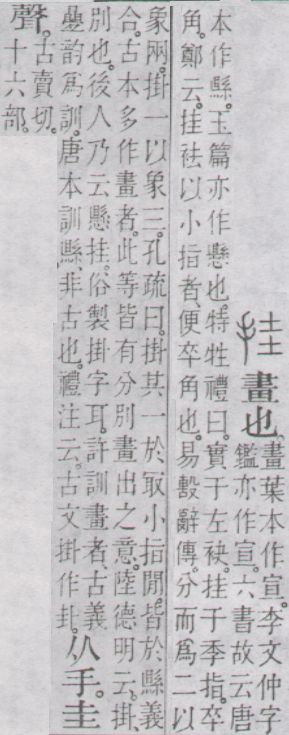 挂
畫也
畫葉本作宣。李文仲字
鑑亦作宣。六書故云唐
本作縣。玉篇亦作懸也。特牲禮曰。實于左袂。挂于季指。卒
角。鄭云。挂袪以小指者。便卒角也。易毄辭傳。分而爲二以
象兩。掛一以象三。孔疏曰。掛其一於冣小指閒。皆於縣義
合。古本多作畫者。此等皆有分別畫出之意。陸德明云。掛。
別也。後人乃云懸挂。俗製掛字耳。許訓畫者。古義
曡韵爲訓。唐本訓縣。非古也。禮注云。古文掛作卦。
从手。圭
聲。
古賣切。
十六部。